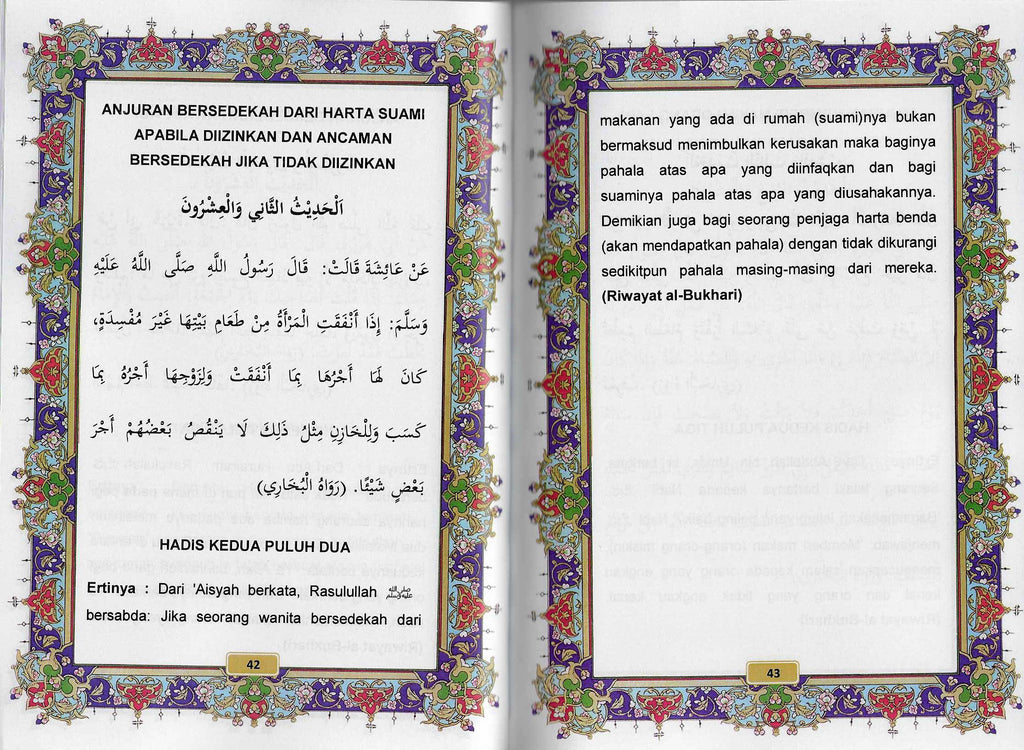 ANJURAN BERSEDEKAH DARI HARTA SUAMI
APABILA DIIZINKAN DAN ANCAMAN
BERSEDEKAH JIKA TIDAK DIIZINKAN
اَلْحَدِيْثُ الثَّانِي وَالْعِشْرُونَ
عَنْ عَائِشَةَ قَالَتْ: قَالَ رَسُولُ اللَّهِ صَلَّى اللَّهُ عَلَيْهِ
وَسَلَّمَ: إِذَا أَنْفَقَتِ الْمَرْأَةُ مِنْ طَعَامِ بَيْتِهَا غَيْرَ مُفْسِدَةٍ،
كَانَ لَهَا أَجْرُهَا بِمَا أَنْفَقَتْ وَلِزَوْجِهَا أَجْرُهُ بِمَا
كَسَبَ وَلِلْخَازِنِ مِثْلُ ذَلِكَ لَا يَنْقُصُ بَعْضُهُمْ أَجْرَ
بَعْضٍ شَيْئًا. (رَوَاهُ الْبُخَارِي)
HADIS KEDUA PULUH DUA
Ertinya : Dari 'Aisyah berkata, Rasulullah ﷺ
bersabda: Jika seorang wanita bersedekah dari
42
makanan yang ada di rumah (suami)nya bukan
bermaksud menimbulkan kerusakan maka baginya
pahala atas apa yang diinfaqkan dan bagi
suaminya pahala atas apa yang diusahakannya.
Demikian juga bagi seorang penjaga harta benda
(akan mendapatkan pahala) dengan tidak dikurangi
sedikitpun pahala masing-masing dari mereka.
(Riwayat al-Bukhari)
43